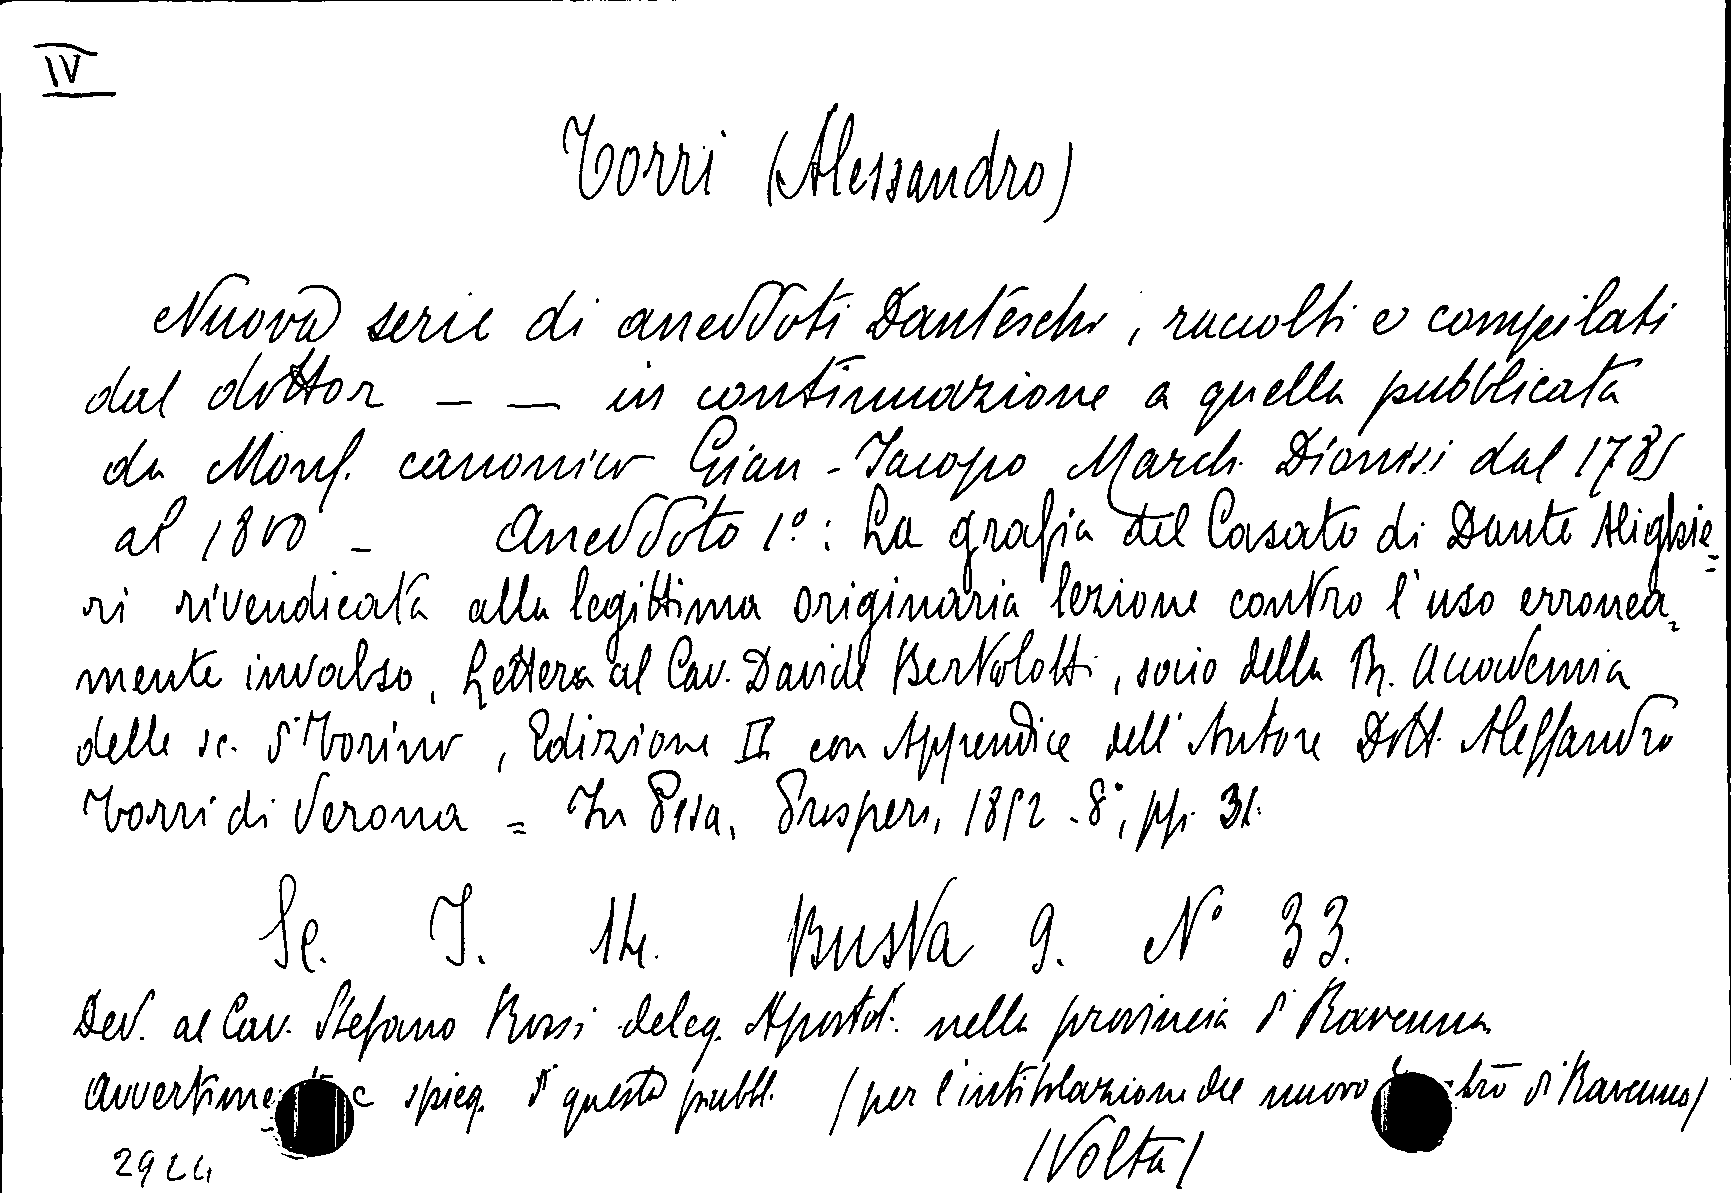 IV
Torri (Alessandro)
Nuova serie di aneddoti Danteschi, raccolti e compilati
dal dottor _ _ in continuazione a quella pubblicata
da Monf. canonico Gian-Jacopo March. Dionisi dal 1785
al 1800 - Aneddoto 1º: La grafia del Casato di Dante Alighie=
ri rivendicata alla legittima originaria lezione contro l'uso erronea=
mente invalso, Lettera al Cav. Davide Bertolotti, socio della R. Accademia
delle sc. di Torino, Edizione II con Appendice dell'Autore Dott. Aleffandro
Torri di Verona = In Pisa, Prosperi, 1852 - 8º, pp. 31.
Busta 9. Nº 33.
Ded. al Cav. Stefano Rossi deleg. Apostol. nella provincia di Ravenna
spieg. di questa pubbl. (per l'intitolazione del nuovo di Ravenna)
(Volta)